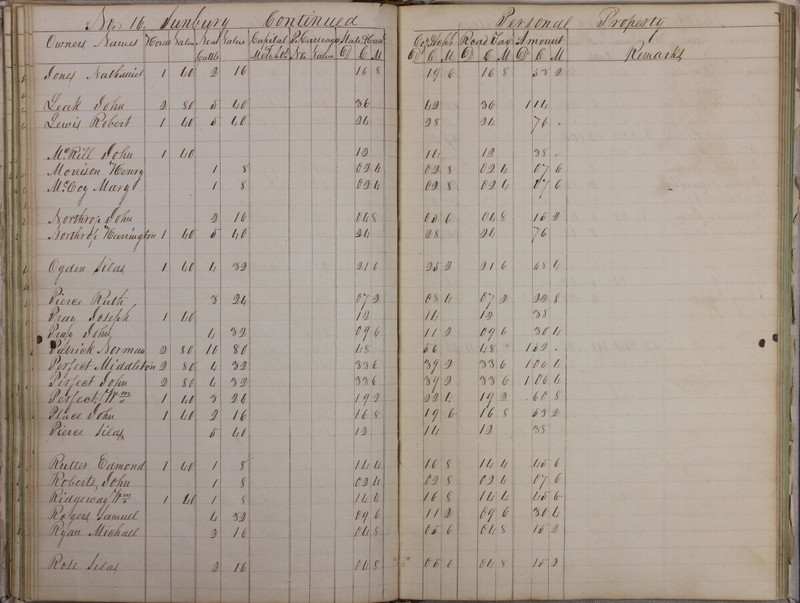 No. 16. Sunbury Continued Personal Property
Owners Names Horses Value Neat Cattle Value Capital Mercht's P. Carriage No Value State & Can'l D C M Co. & School D C M Road Tax D C M Amount D C M Remarks
Jones Nathaniel 1 40 2 16 16 8 19 6 16 8 53 2
Leak John 2 80 5 40 36 42 36 114
Lewis Robert 1 40 5 40 24 28 24 76 .
McKill John 1 40 12 14 12 38 .
Monison Henry 1 8 02 4 02 8 02 4 07 6
McCoy Mary 1 8 02 4 02 8 02 4 07 6
Northrop John 2 16 04 8 05 6 04 8 15 2
Northrop Harrington 1 40 5 40 24 28 24 76
Ogden Silas 1 40 4 32 21 6 25 2 21 6 68 4
Pierce Ruth 3 24 07 2 08 4 07 2 22 8
Pray Joseph 1 40 12 14 12 38
Pray John 4 32 09 6 11 2 09 6 30 4
Patrick Norman 2 80 10 80 48 56 48 152 .
Perfect Middleton 2 80 4 32 33 6 39 2 33 6 106 4
Perfect John 2 80 4 32 33 6 39 2 33 6 106 4
Perfect, Wm 1 40 3 24 19 2 22 4 19 2 60 8
Place John 1 40 2 16 16 8 19 6 16 8 53 2
Pierce Silas 5 40 12 14 12 38
Rutter Edmond 1 40 1 8 14 4 16 8 14 4 45 6
Roberts, John 1 8 02 4 02 8 02 4 07 6
Ridgeway Wm 1 40 1 8 14 4 16 8 14 4 45 6
Rogers Samuel 4 32 09 6 11 2 09 6 30 4
Ryan Michael 2 16 04 8 05 6 04 8 15 2
Rose Silas 2 16 04 8 05 6 04 8 15 2